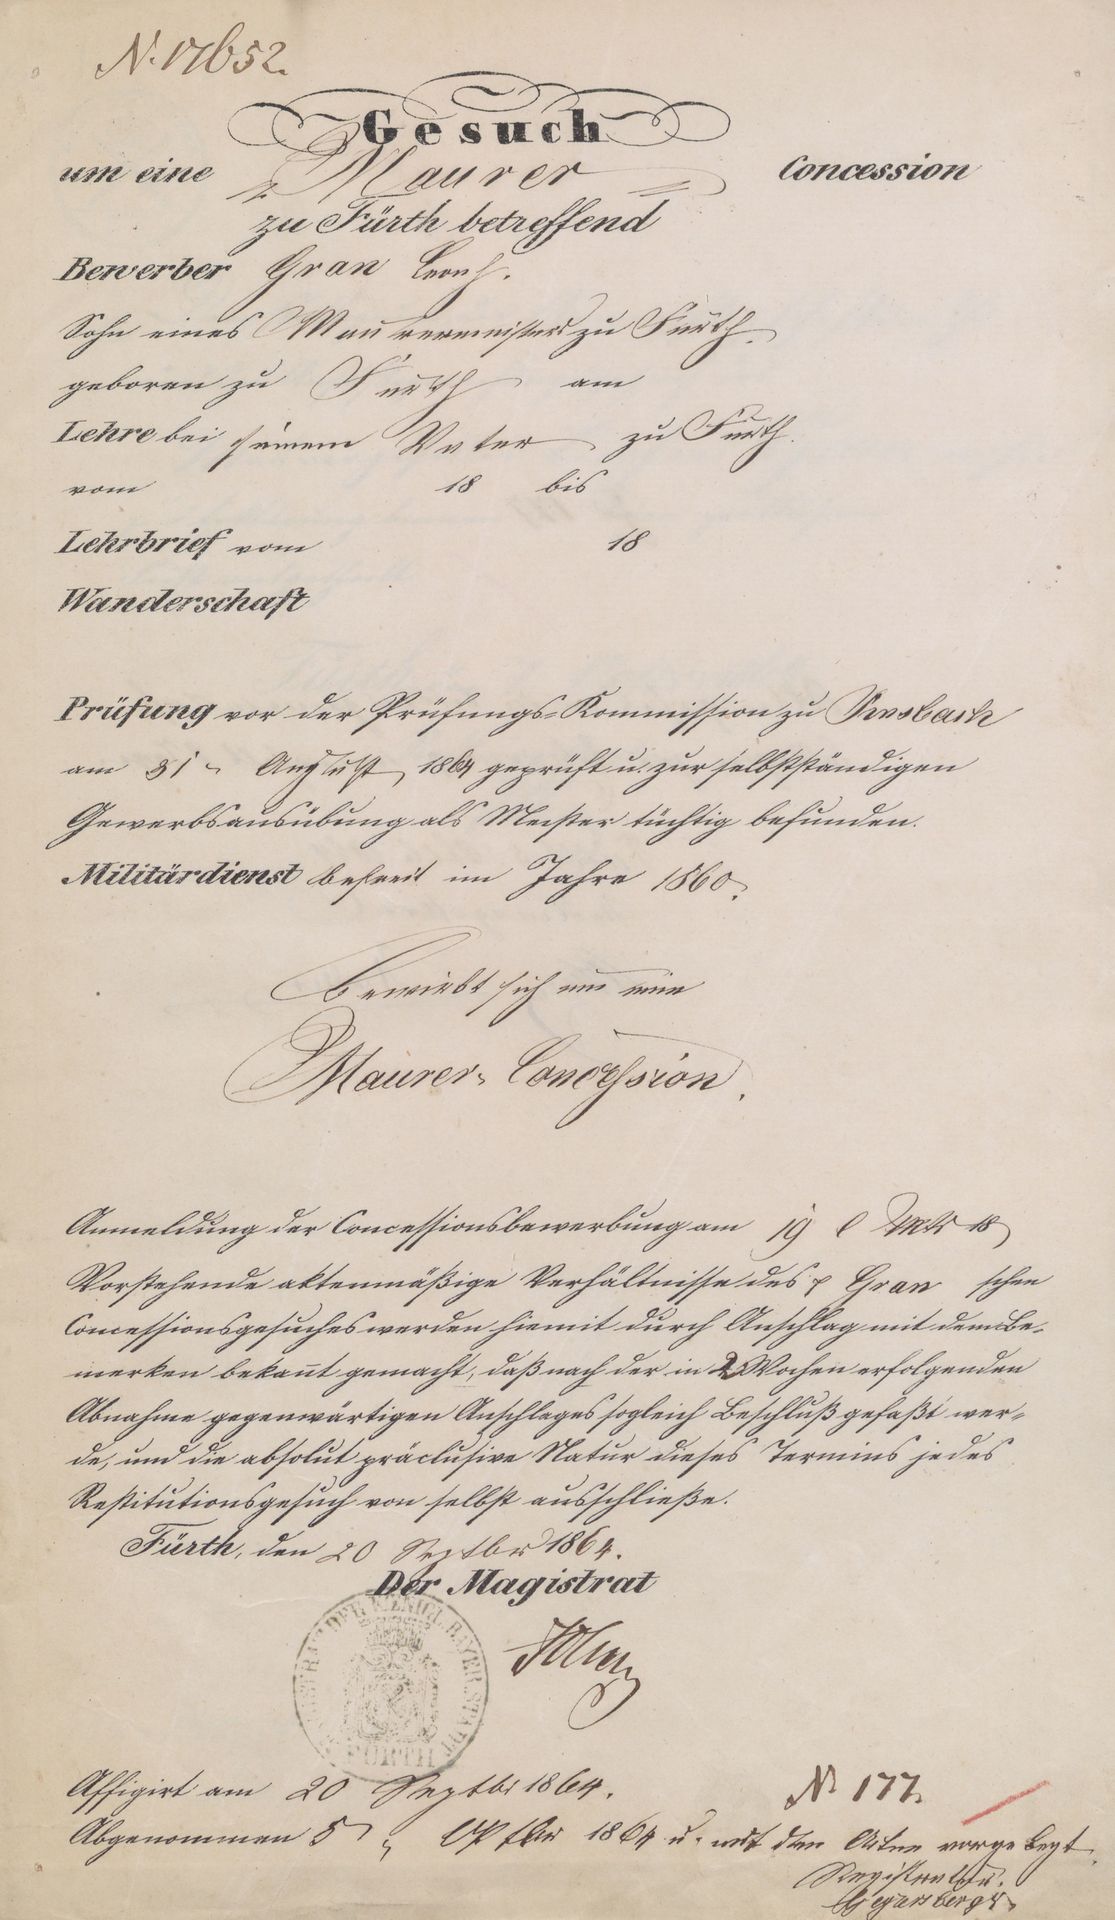 N. 17652.
Gesuch
um eine Maurer Concession
zu Fürth betreffend
Bewerber Gran Leonh.
Sohn eines Maurermeisters zu Fürth.
geboren zu Fürth am
Lehre bei seinem Vater zu Fürth.
vom 18 bis
Lehrbrief vom 18
Wanderschaft
Prüfung vor der Prüfungs-Kommission zu Ansbach
am 31 August 1864 geprüft u. zur selbstständigen
Gewerbsausübung als Meister tüchtig befunden.
Militärdienst befreit im Jahre 1860.
Bewirbt sich um eine
Maurer-Concession.
Anmeldung der Concessionsbewerbung am 19 l Mts 18
Vorstehende aktenmäßige Verhältnisse des Gran schen
Concessionsgesuches werden hiemit durch Anschlag mit dem Be-
merken bekannt gemacht, daß nach der in 2 Wochen erfolgenden
Abnahme gegenwärtigen Anschlages sogleich Beschluß gefaßt wer-
de, und die absolut präclusive Natur dieses Termins jedes
Restitutionsgesuch von selbst ausschließe.
Fürth, den 20 Septbr 1864.
Der Magistrat
MAGISTRAT DER KOENIGL. BAYER. STADT FÜRTH
Affigirt am 20 Septbr 1864.
N 177.
Abgenommen 5 Oktbr 1864 u. mit den Akten vorgelegt.
Registratur.